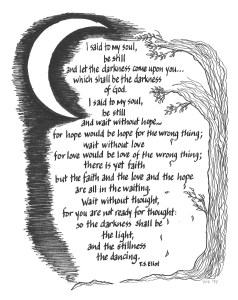 I said to my soul,
be still
and let the darkness come upon you...
which shall be the darkness
of God.
I said to my soul,
be still
and wait without hope...
for hope would be hope for the wrong thing;
wait without love
for love would be love of the wrong thing;
there is yet faith
but the faith and the love and the hope
are all in the waiting.
Wait without thought,
for you are not ready for thought:
so the darkness shall be
the light,
and the stillness
the dancing.
T.S. Eliot